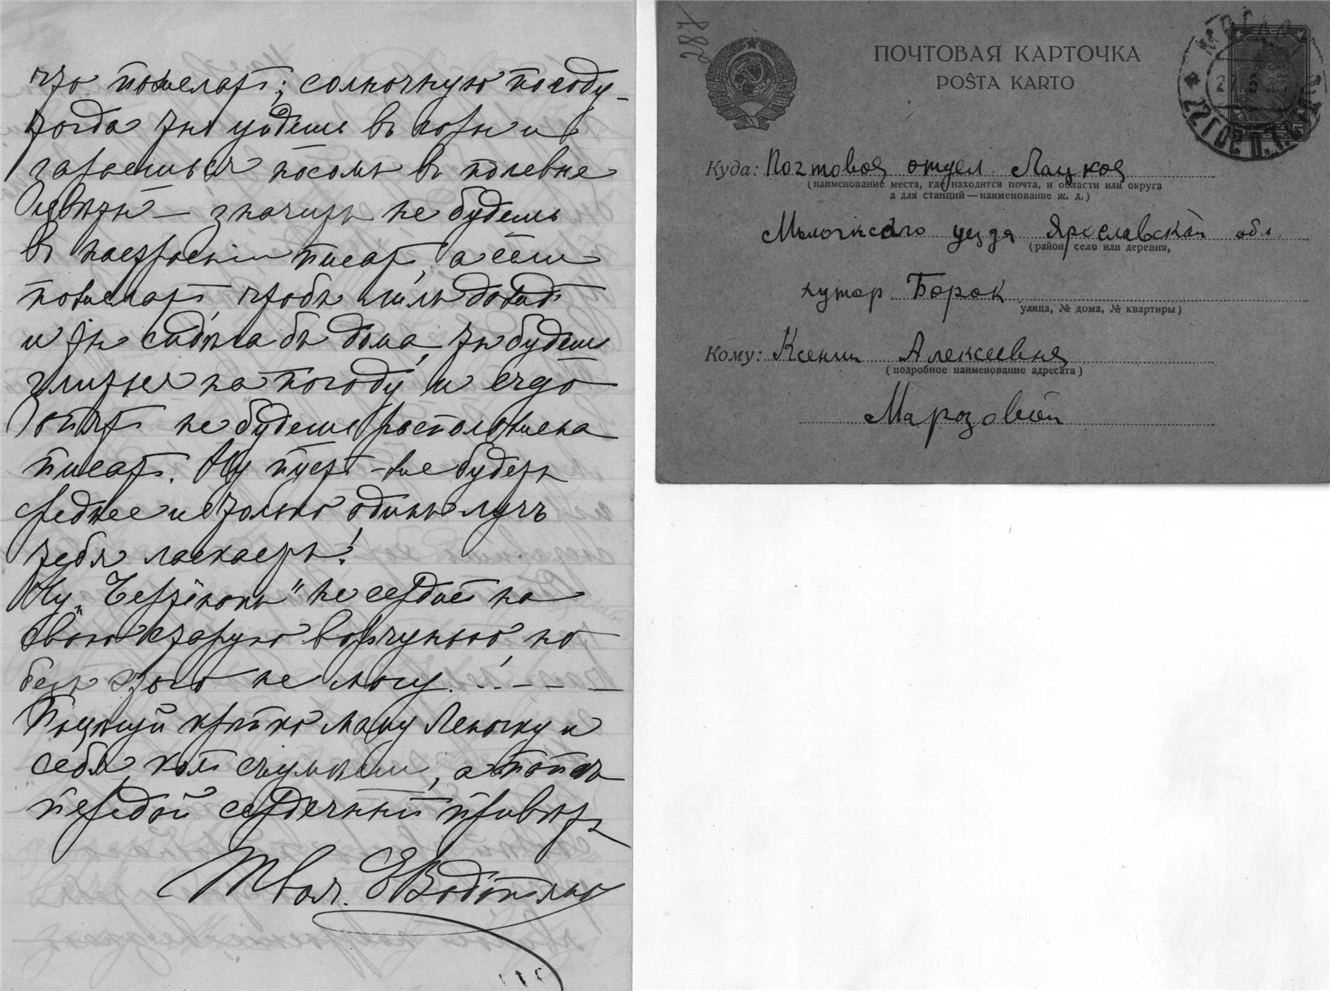 что пожелать; солнечную погоду –
тогда ты уйдешь въ поля и
зароешься носомъ въ полевые
цвѣты – значитъ не будешь
въ настроеніи писать, а если
пожелать чтобы лилъ дождь
и ты сидѣла бы дома, ты будешь
злиться на погоду и
опять не будешь расположена
писать. Ну пусть не будетъ
среднее и только одинъ лучъ
тебя ласкаетъ!
Ну, не сердись на
свою старую ворчунью но
безъ этого не могу...– – –
Поцѣлуй крѣпко маму Леночку и
себя, коли съумѣешь, а папѣ
передай сердечный привѣтъ
Твоя. Е Водоп
287
ПОЧТОВАЯ КАРТОЧКА
POŜTA KARTO
Куда: Почтовое отдел Лацкое
(наименование места, где находится почта, и области или округа
а для станций — наименование ж. д.)
Мологского уезда Ярославской обл.
(район, село или деревня,
хутор Борок
улица, № дома, № квартиры)
Кому: Ксении Алексеевне
(подробное наименование адресата)
Марозовой